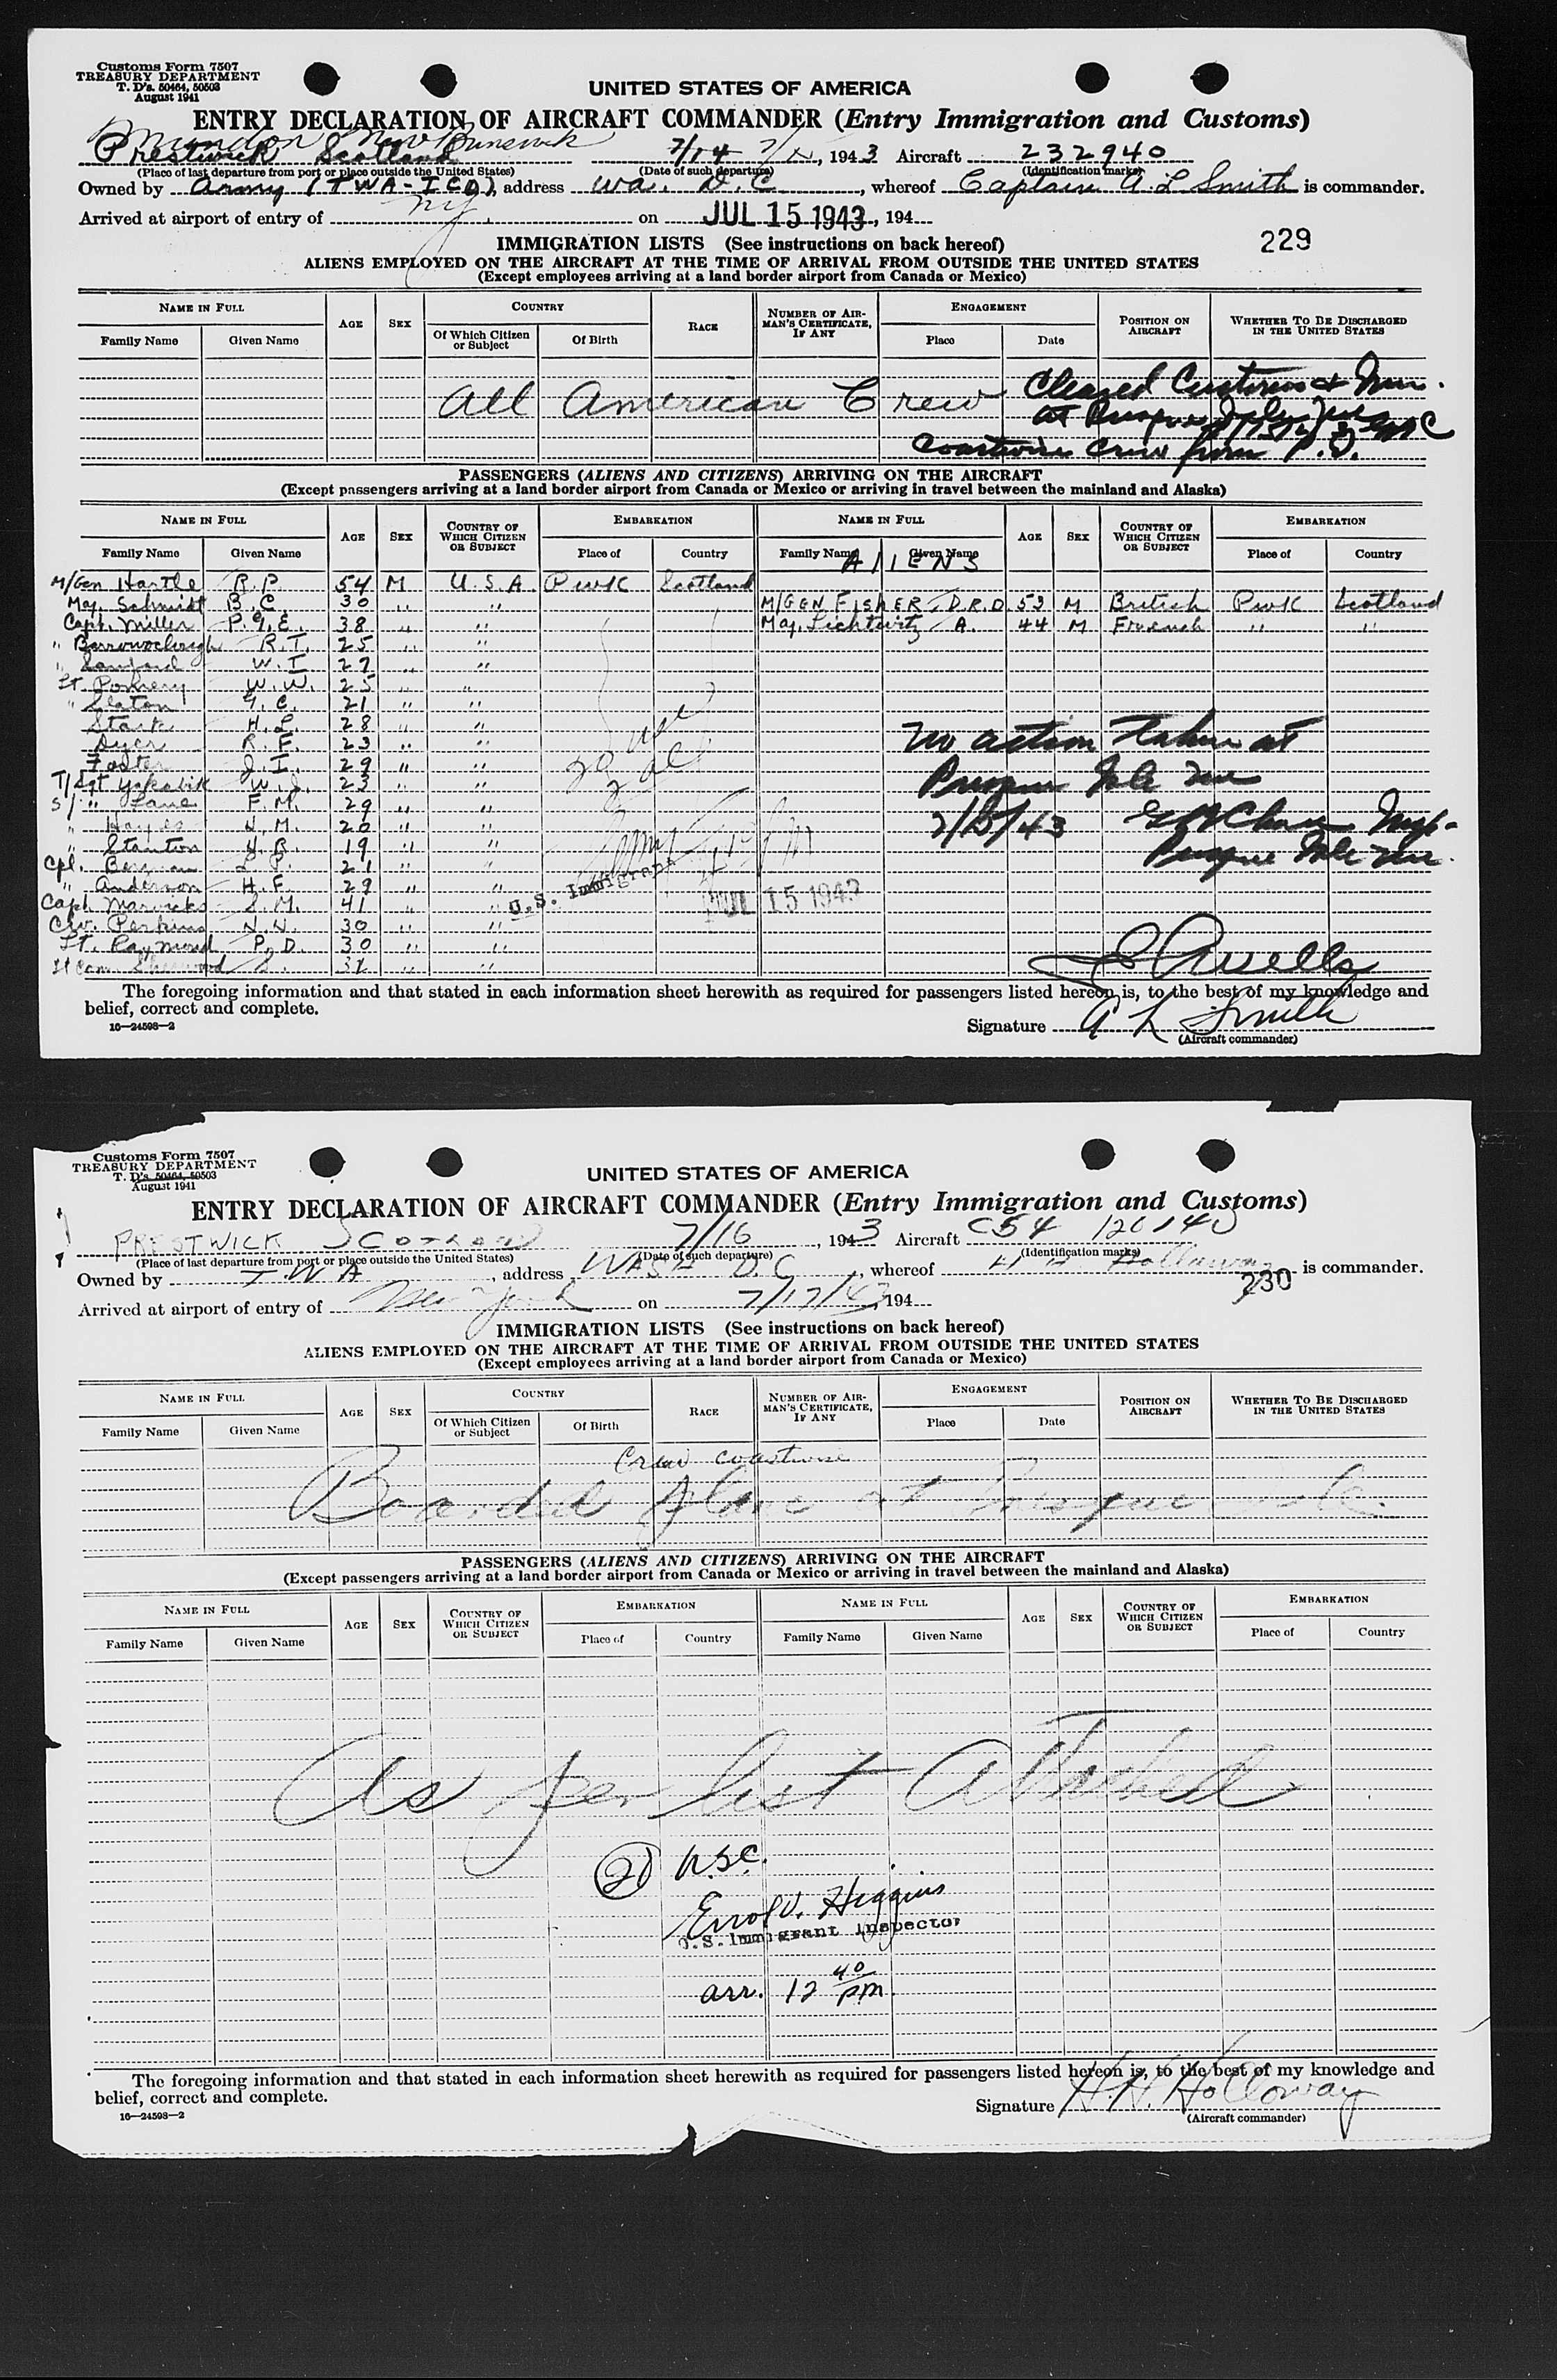 Customs Form 7507
TREASURY DEPARTMENT
T. D's. 50464, 50503
August 1941
UNITED STATES OF AMERICA
ENTRY DECLARATION OF AIRCRAFT COMMANDER (Entry Immigration and Customs)
New Brunswick
Prestwick Scotland 7/14, 1943 Aircraft 232940
(Place of last departure from port or place outside the United States) (Date of such departure) (Identification marks)
Owned by Army (TWA-ICD), address Wa. D.C., whereof Captain A L Smith is commander.
Arrived at airport of entry of NY. on JUL 15 1943, 194
IMMIGRATION LISTS (See instructions on back hereof) 229
ALIENS EMPLOYED ON THE AIRCRAFT AT THE TIME OF ARRIVAL FROM OUTSIDE THE UNITED STATES
(Except employees arriving at a land border airport from Canada or Mexico)
NAME IN FULL AGE SEX COUNTRY RACE NUMBER OF AIRMAN'S CERTIFICATE, IF ANY ENGAGEMENT POSITION ON AIRCRAFT WHETHER TO BE DISCHARGED IN THE UNITED STATES
Family Name Given Name Of Which Citizen or Subject Of Birth Place Date
All American Crew Cleared Customs & Imm.
at Presque Isle Me
Coastwise crew from P.I.
PASSENGERS (ALIENS AND CITIZENS) ARRIVING ON THE AIRCRAFT
(Except passengers arriving at a land border airport from Canada or Mexico or arriving in travel between the mainland and Alaska)
NAME IN FULL AGE SEX COUNTRY OF WHICH CITIZEN OR SUBJECT EMBARKATION NAME IN FULL AGE SEX COUNTRY OF WHICH CITIZEN OR SUBJECT EMBARKATION
Family Name Given Name Place of Country Family Name Given Name Place of Country
ALIENS
M/Gen Hartle R.P. 54 M U.S.A. PWK Scotland
Maj. Schmidt B.C. 30 " " M/GEN FISHER D.R.D. 53 M British PWK Scotland
Capt. Miller P.G.E. 38 " " Maj. Lichtwitz A. 44 M French " "
" R.T. 25 " "
" Sanford W.I. 27 " "
Lt. Pomeroy W.W. 25 " "
" Slaton G.C. 21 " "
Stark H.L. 28 " "
Dyer R.F. 23 " "
Foster J.I. 29 " "
T/Sgt Yakabik W.J. 23 " "
S/ " Lane F.M. 29 " "
" Hayes J.M. 20 " "
" Stanton H.B. 19 " "
Cpl. Berman L.P. 21 " "
" Anderson H.F. 29 " "
Capt. Marwicks S.M. 41 " "
Civ. Perkins N.N. 30 " "
Lt. Raymond P.D. 30 " "
Lt Com. Sherwood S. 31 " "
20 USC
2 al
U.S. Immigrant
JUL 15 1943
No action taken at
Presque Isle Me
7/15/43
Presque Isle Me.
The foregoing information and that stated in each information sheet herewith as required for passengers listed hereon is, to the best of my knowledge and
belief, correct and complete.
16—24598—2 Signature A L Smith
(Aircraft commander)
Customs Form 7507
TREASURY DEPARTMENT
T. D's. 50464, 50503
August 1941
UNITED STATES OF AMERICA
ENTRY DECLARATION OF AIRCRAFT COMMANDER (Entry Immigration and Customs)
PRESTWICK SCOTLAND 7/16, 1943 Aircraft C54 126140
(Place of last departure from port or place outside the United States) (Date of such departure) (Identification marks)
Owned by TWA, address WASH D.C., whereof H H Holloway is commander.
230
Arrived at airport of entry of New York on 7/17/43, 194
IMMIGRATION LISTS (See instructions on back hereof)
ALIENS EMPLOYED ON THE AIRCRAFT AT THE TIME OF ARRIVAL FROM OUTSIDE THE UNITED STATES
(Except employees arriving at a land border airport from Canada or Mexico)
NAME IN FULL AGE SEX COUNTRY RACE NUMBER OF AIRMAN'S CERTIFICATE, IF ANY ENGAGEMENT POSITION ON AIRCRAFT WHETHER TO BE DISCHARGED IN THE UNITED STATES
Family Name Given Name Of Which Citizen or Subject Of Birth Place Date
Crew coastwise
Boarded plane at Presque Isle.
PASSENGERS (ALIENS AND CITIZENS) ARRIVING ON THE AIRCRAFT
(Except passengers arriving at a land border airport from Canada or Mexico or arriving in travel between the mainland and Alaska)
NAME IN FULL AGE SEX COUNTRY OF WHICH CITIZEN OR SUBJECT EMBARKATION NAME IN FULL AGE SEX COUNTRY OF WHICH CITIZEN OR SUBJECT EMBARKATION
Family Name Given Name Place of Country Family Name Given Name Place of Country
As per list Attached
21 USC.
Errol V. Higgins
U.S. Immigrant Inspector
arr. 12 40 pm
The foregoing information and that stated in each information sheet herewith as required for passengers listed hereon is, to the best of my knowledge and
belief, correct and complete.
16—24598—2 Signature H.H. Holloway
(Aircraft commander)